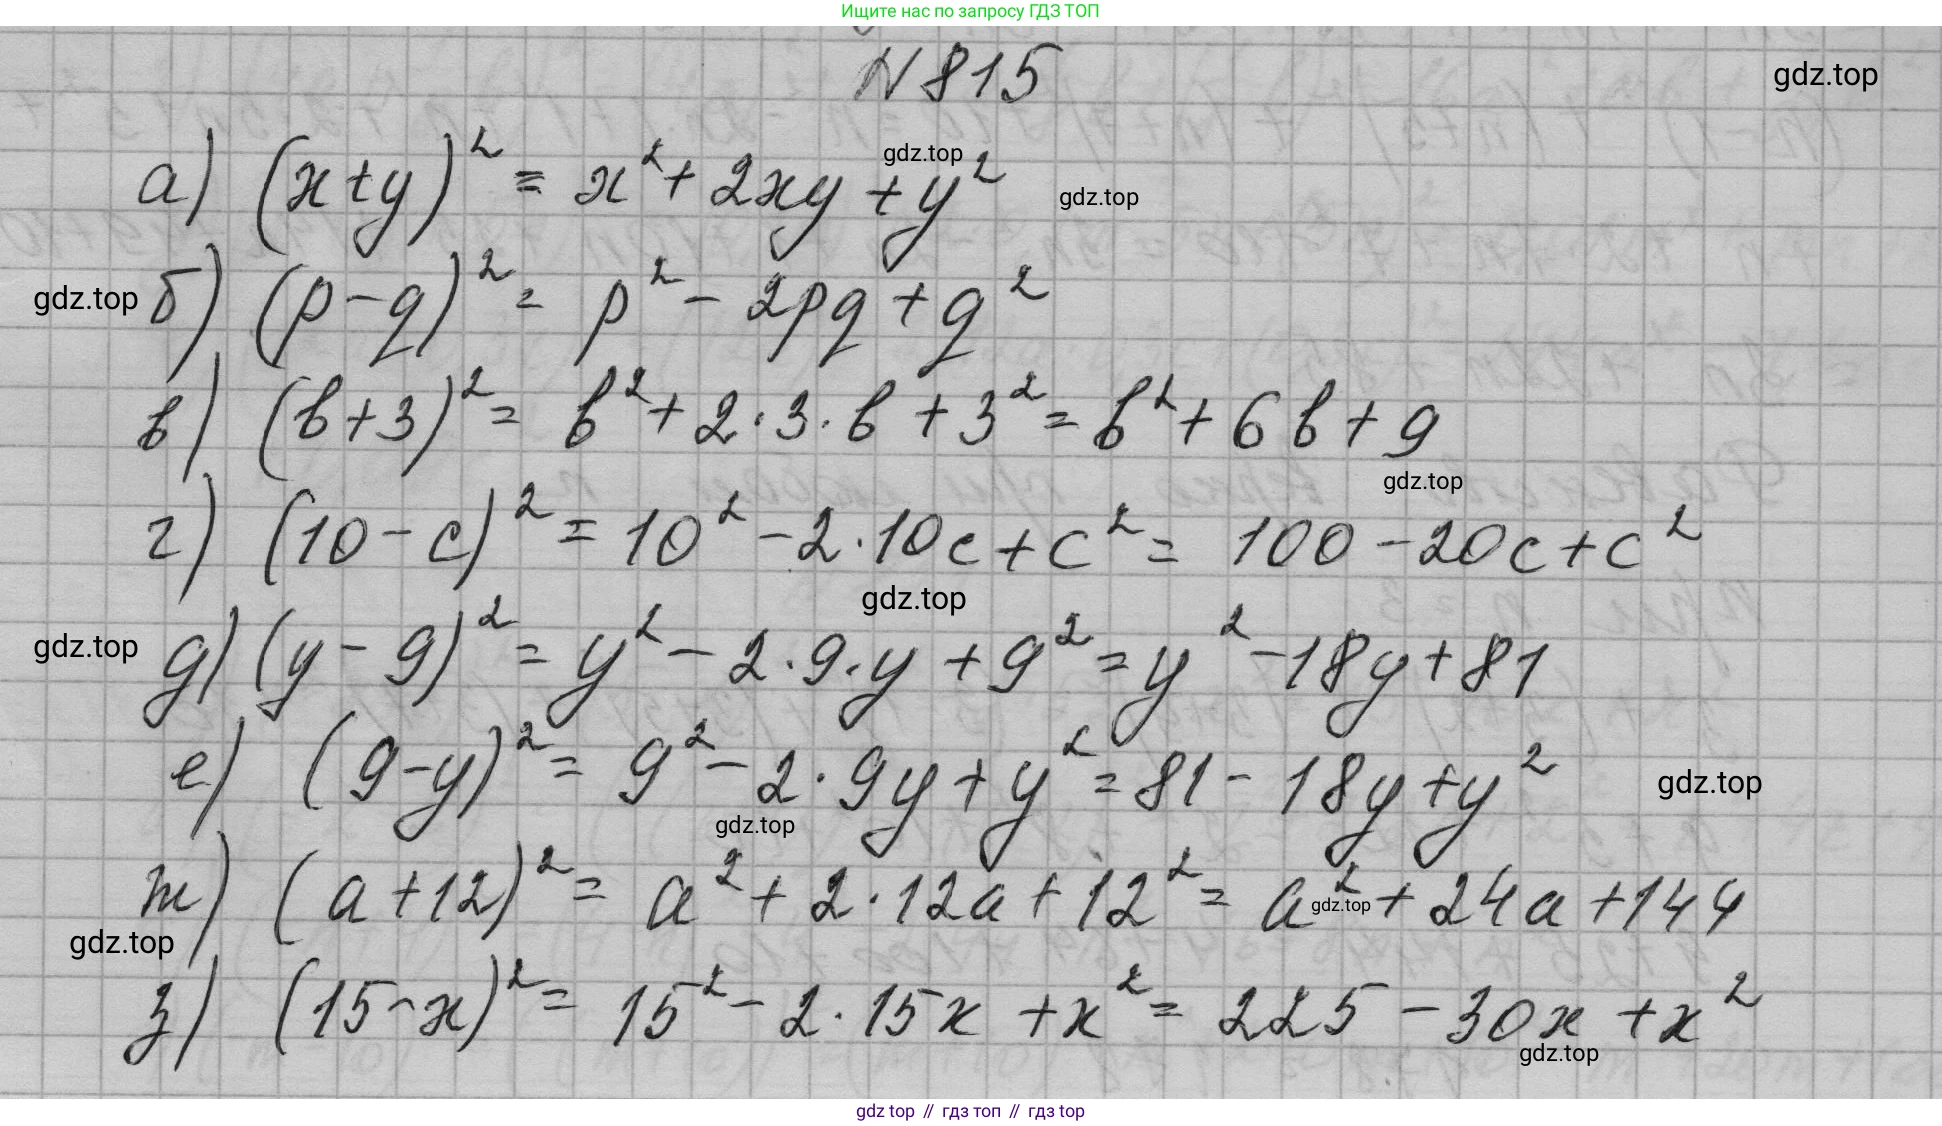 Ищите нас по запросу ГДЗ ТОП
N 815
gdz.top
а) (x+y)² = x² + 2xy + y²
gdz.top
gdz.top
gdz.top
б) (p-q)² = p² - 2pq + q²
в) (b+3)² = b² + 2·3·b + 3² = b² + 6b + 9
gdz.top
г) (10-c)² = 10² - 2·10c + c² = 100 - 20c + c²
gdz.top
gdz.top
д) (y-9)² = y² - 2·9·y + 9² = y² - 18y + 81
е) (9-y)² = 9² - 2·9y + y² = 81 - 18y + y²
gdz.top
gdz.top
ж) (a+12)² = a² + 2·12a + 12² = a² + 24a + 144
gdz.top
gdz.top
з) (15-x)² = 15² - 2·15x + x² = 225 - 30x + x²
gdz.top
gdz top // гдз топ // гдз top